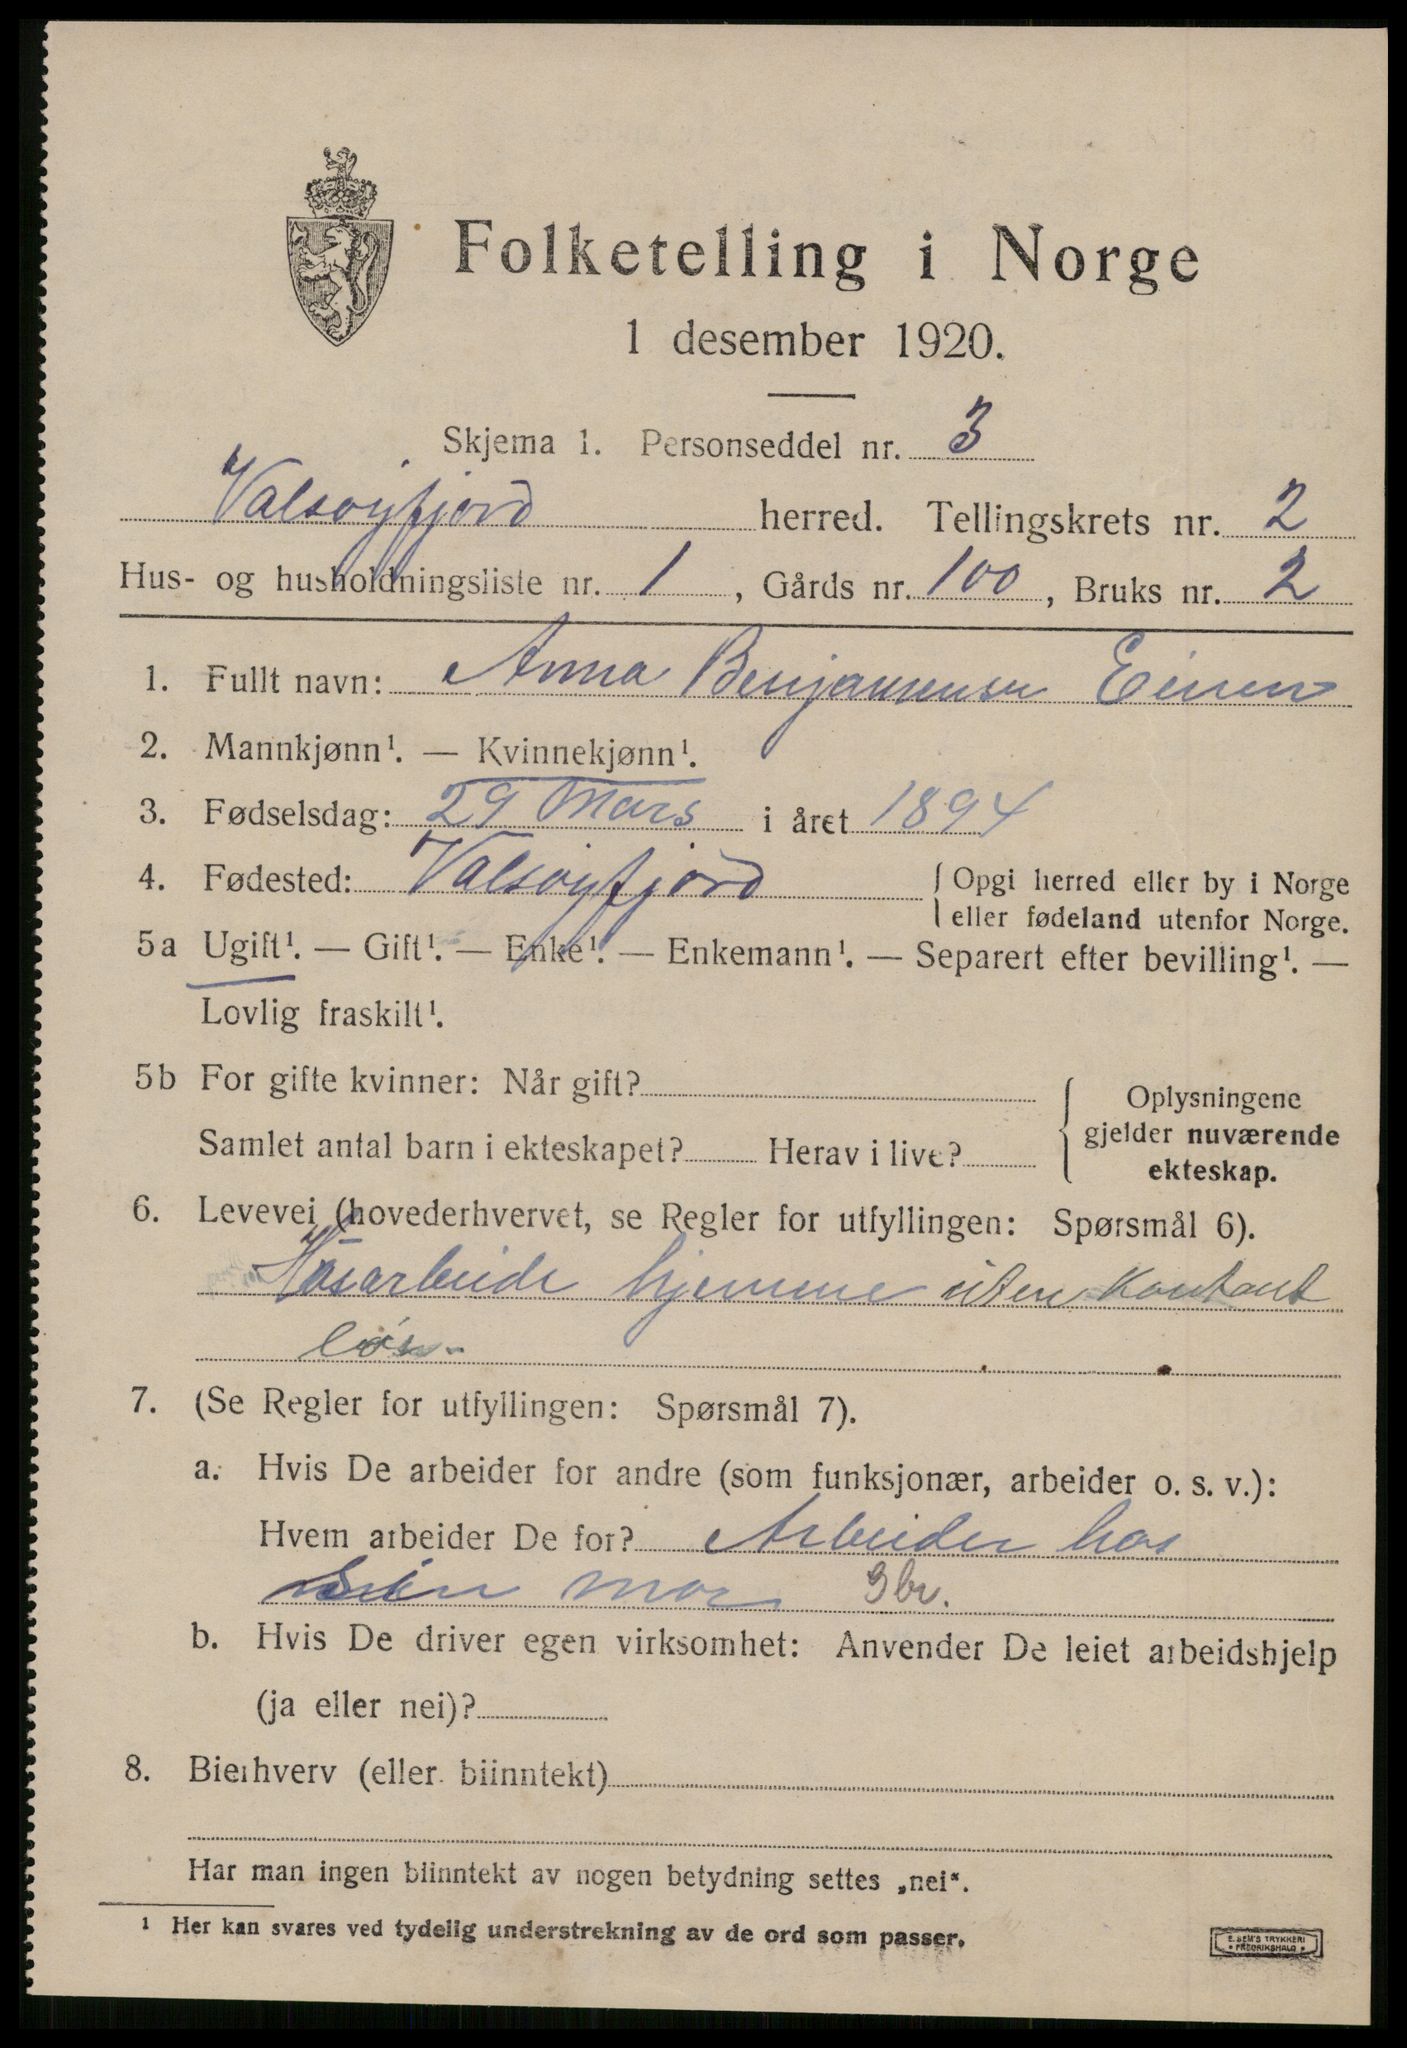 Folketelling i Norge
1 desember 1920.
Skjema 1. Personseddel nr. 3
Valsøyfjord herred. Tellingskrets nr. 2
Hus- og husholdningsliste nr. 1, Gårds nr. 100, Bruks nr. 2
1. Fullt navn: Anna Benjaminsen
2. Mannkjønn¹. — Kvinnekjønn¹.
3. Fødselsdag: 29 Mars i året 1894
4. Fødested: Valsøyfjord { Opgi herred eller by i Norge
eller fødeland utenfor Norge.
5a Ugift¹. — Gift¹. — Enke¹. — Enkemann¹. — Separert efter bevilling¹. —
Lovlig fraskilt¹.
5b For gifte kvinner: Når gift?
Samlet antal barn i ekteskapet? Herav i live?
{ Oplysningene
gjelder nuværende
ekteskap.
6. Levevei (hovederhvervet, se Regler for utfyllingen: Spørsmål 6).
Husarbeide hjemme uten kontant
løn.
7. (Se Regler for utfyllingen: Spørsmål 7).
a. Hvis De arbeider for andre (som funksjonær, arbeider o. s. v.):
Hvem arbeider De for? Arbeider hos
sin mor gbr.
b. Hvis De driver egen virksomhet: Anvender De leiet arbeidshjelp
(ja eller nei)?
8. Bierhverv (eller biinntekt)
Har man ingen biinntekt av nogen betydning settes „nei“.
¹ Her kan svares ved tydelig understrekning av de ord som passer.
E. SEM'S TRYKKERI
• FREDRIKSHALD •